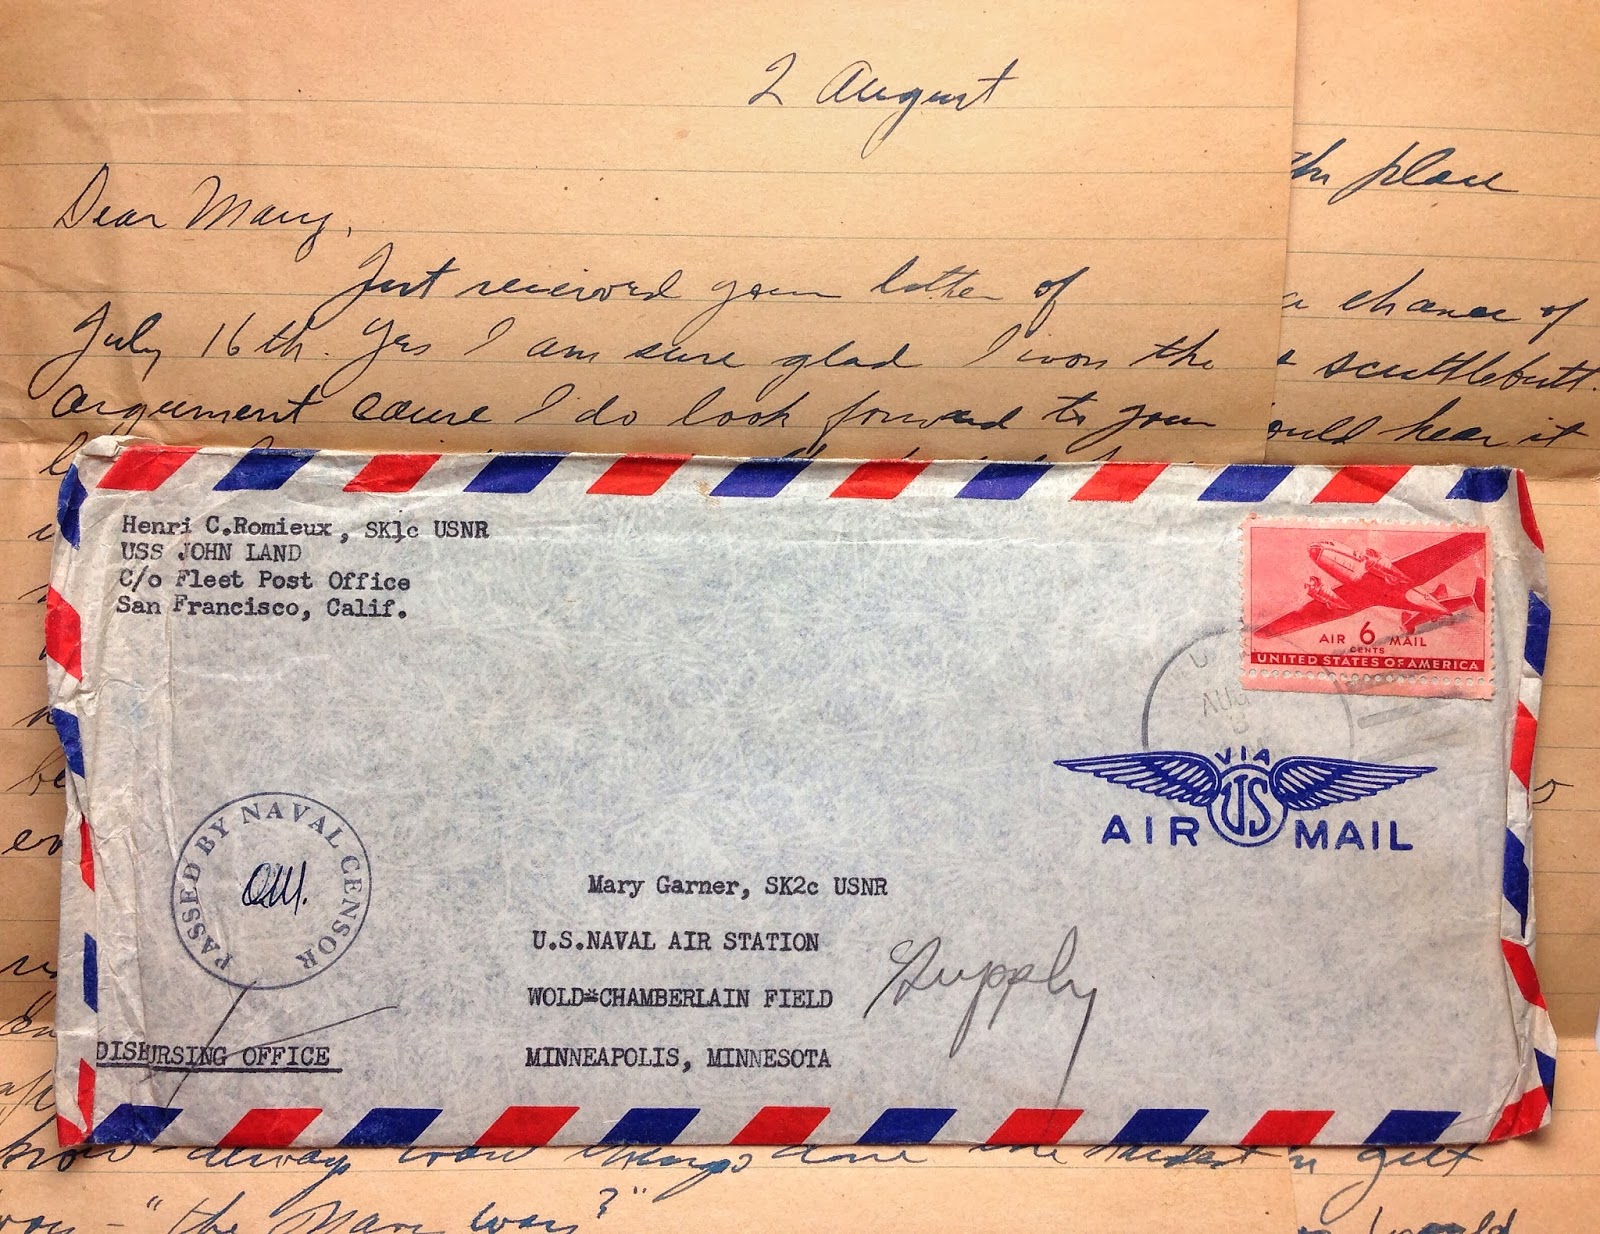 2 August
Dear Mary,
Just received your letter of
July 16th. Yes I am sure glad I won the
argument cause I do look forward to your
the place
a chance of
scuttlebutt.
ould hear it
Henri C.Romieux, SK1c USNR
USS JOHN LAND
C/o Fleet Post Office
San Francisco, Calif.
AIR 6 MAIL
CENTS
UNITED STATES OF AMERICA
AUG
3
VIA
US
AIR MAIL
PASSED BY NAVAL CENSOR
Mary Garner, SK2c USNR
U.S.NAVAL AIR STATION
WOLD-CHAMBERLAIN FIELD
MINNEAPOLIS, MINNESOTA
Supply
DISBURSING OFFICE
know always want things done the hardest
get
way - "the Navy way"
would